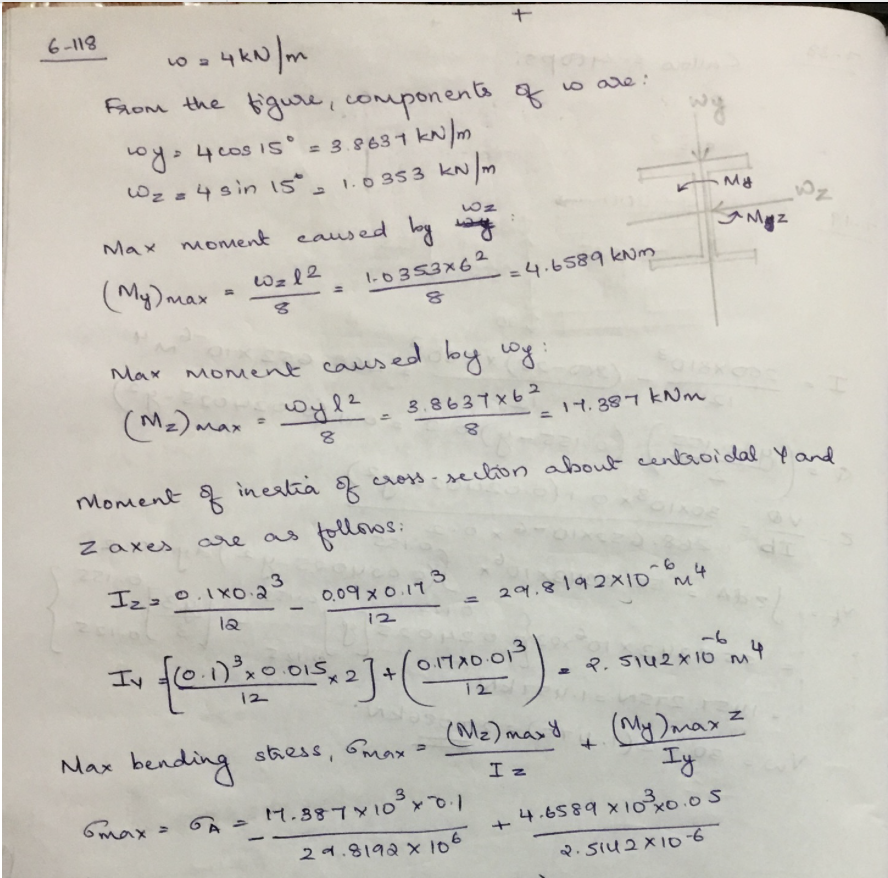 +
6-118
w = 4 kN/m
From the figure, components of w are:
wy = 4 cos 15° = 3.8637 kN/m
wz = 4 sin 15° = 1.0353 kN/m
wy
My
wz
Mz
Max moment caused by wz :
(My)max = wz l² / 8 = 1.0353×6² / 8 = 4.6589 kNm
Max moment caused by wy:
(Mz)max = wy l² / 8 = 3.8637×6² / 8 = 17.387 kNm
Moment of inertia of cross-section about centroidal Y and
Z axes are as follows:
Iz = 0.1×0.2³ / 12 - 0.09×0.17³ / 12 = 29.8192×10⁻⁶ m⁴
Iy = [(0.1)³×0.015 / 12 ×2] + (0.17×0.01³ / 12) = 2.5142×10⁻⁶ m⁴
Max bending stress, σmax = (Mz)max y / Iz + (My)max z / Iy
σmax = σA = - 17.387×10³×-0.1 / 29.8192×10⁶ + 4.6589×10³×0.05 / 2.5142×10⁻⁶